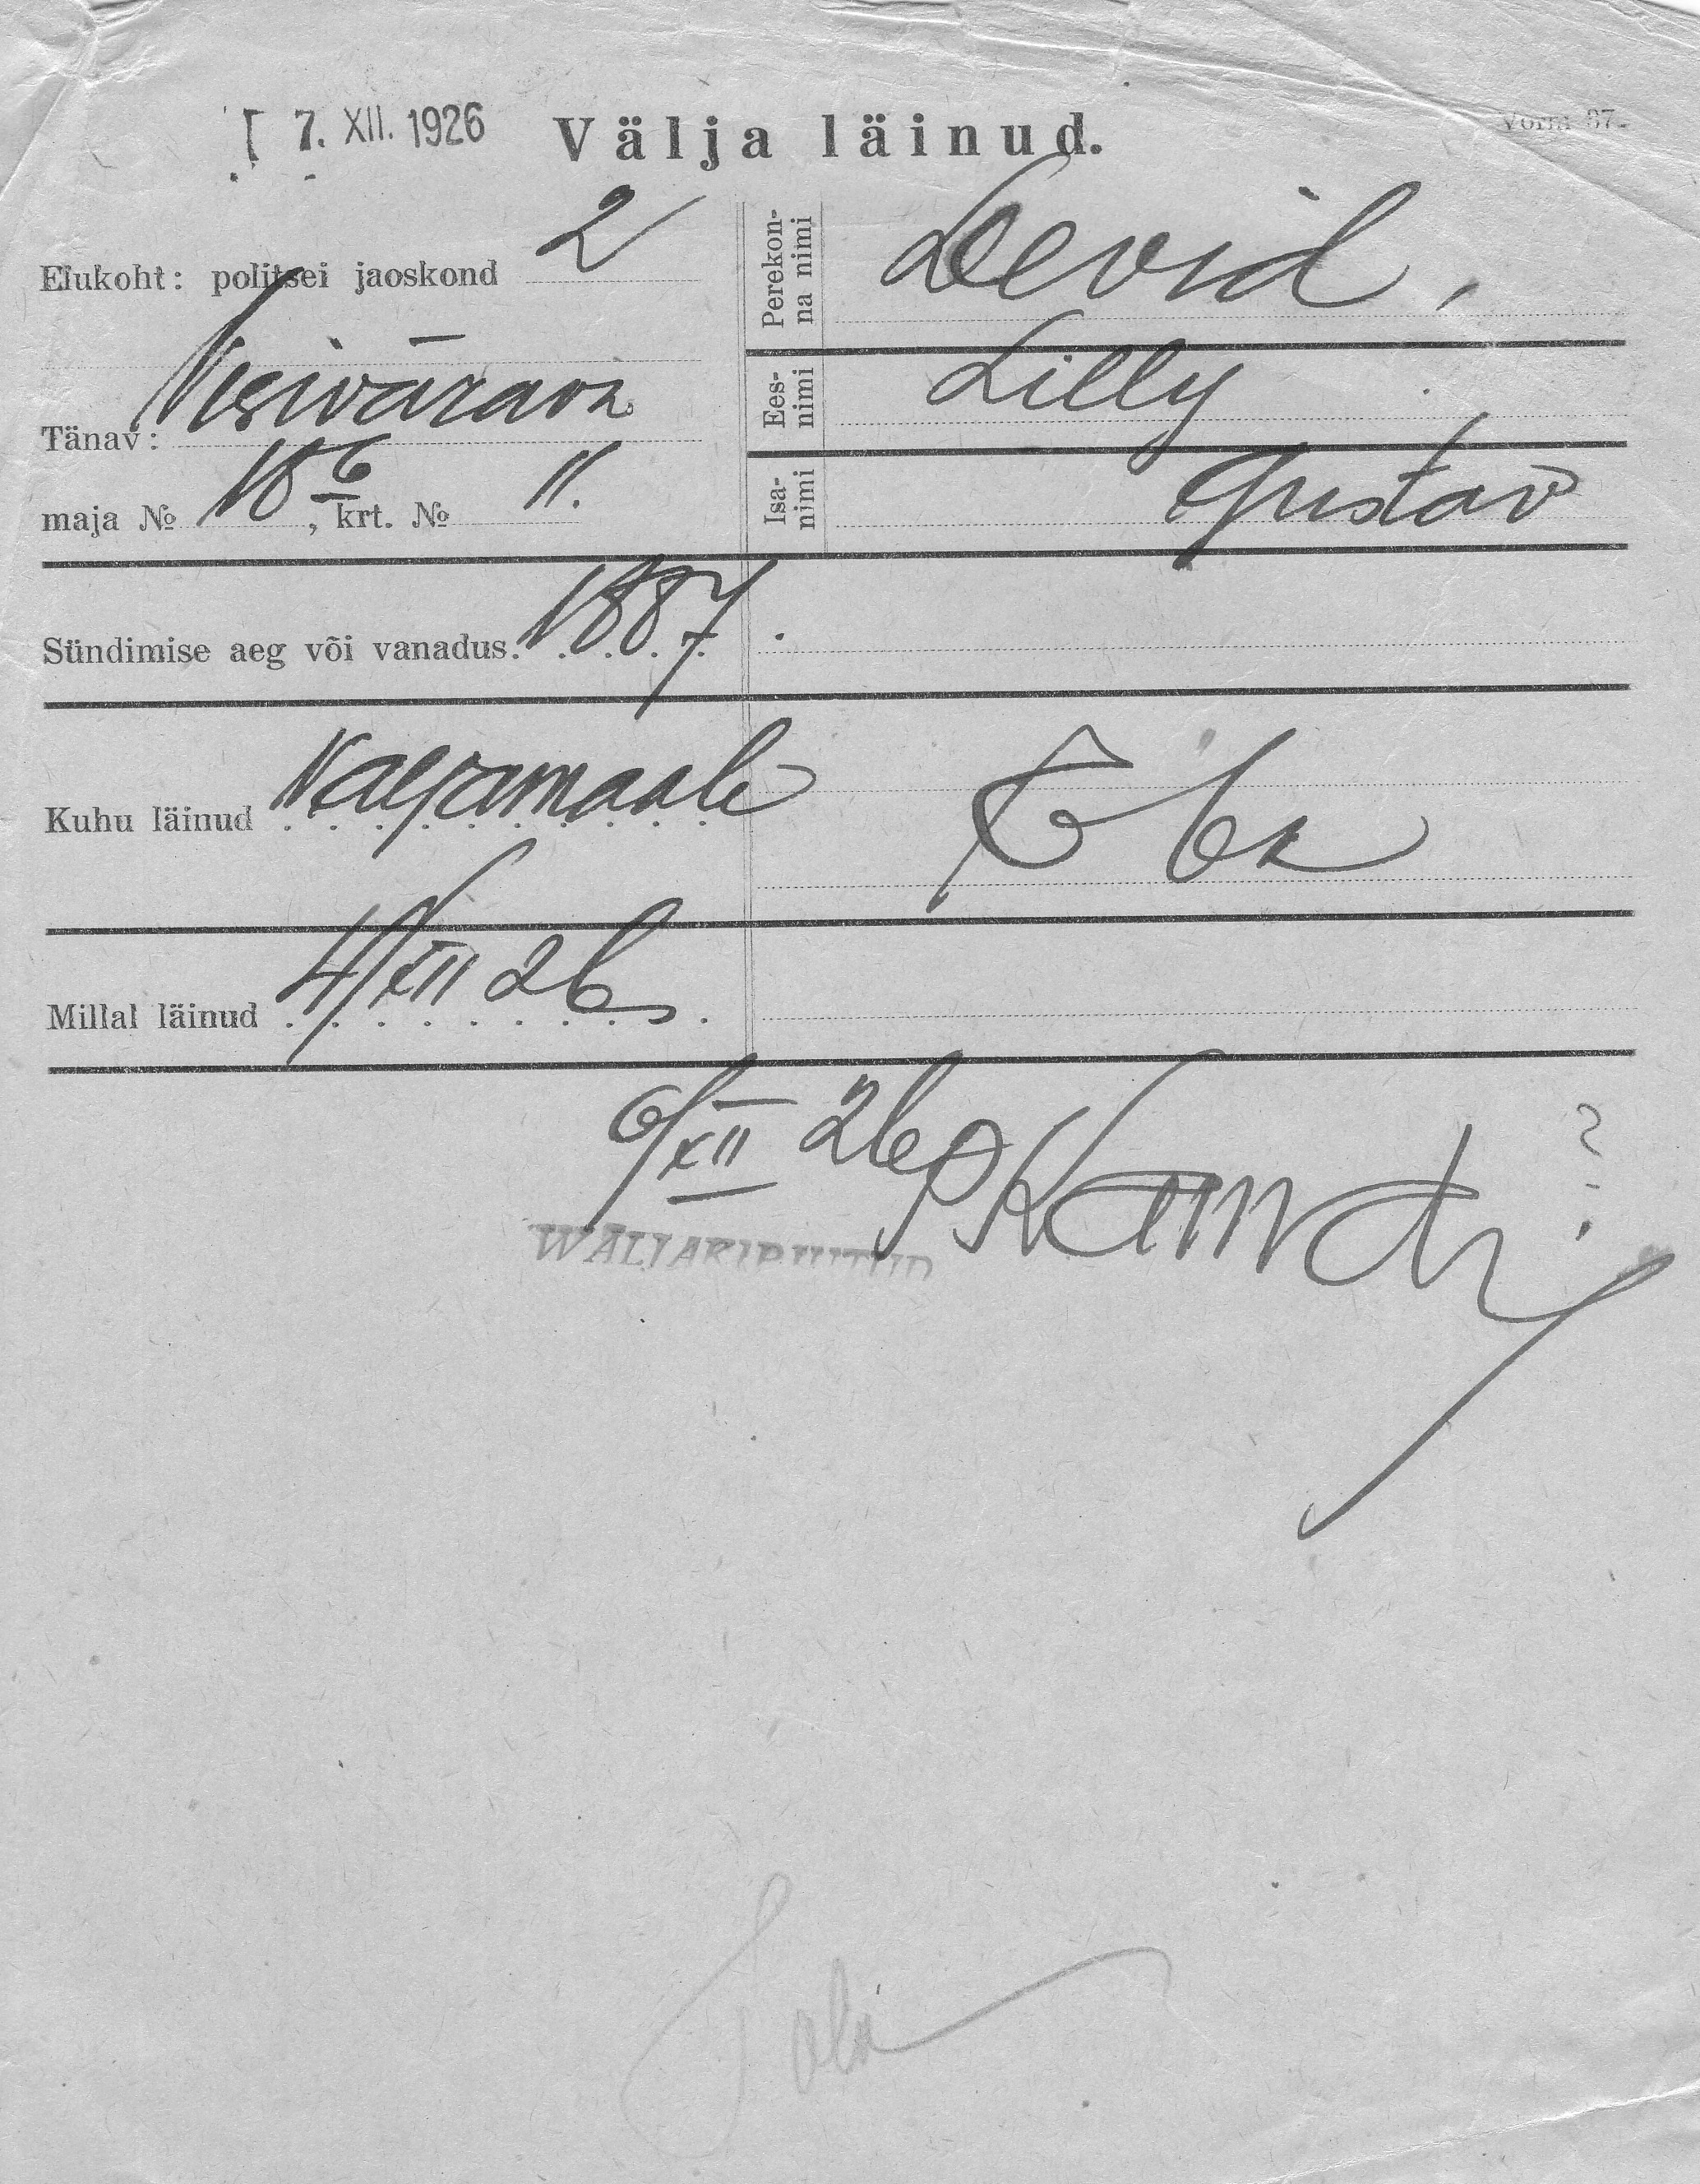 7. XII. 1926 Välja läinud. Vorm 37.
Elukoht: politsei jaoskond 2
Tänav: Wesiväravа
maja № 18 б, krt. № 11.
Perekonna nimi
Eesnimi Lilly
Isanimi Gustav
Sündimise aeg või vanadus. 1887.
Kuhu läinud Valjamaale
Millal läinud 4/XII 26
6/XII 26
WALJAKIRJUTUD